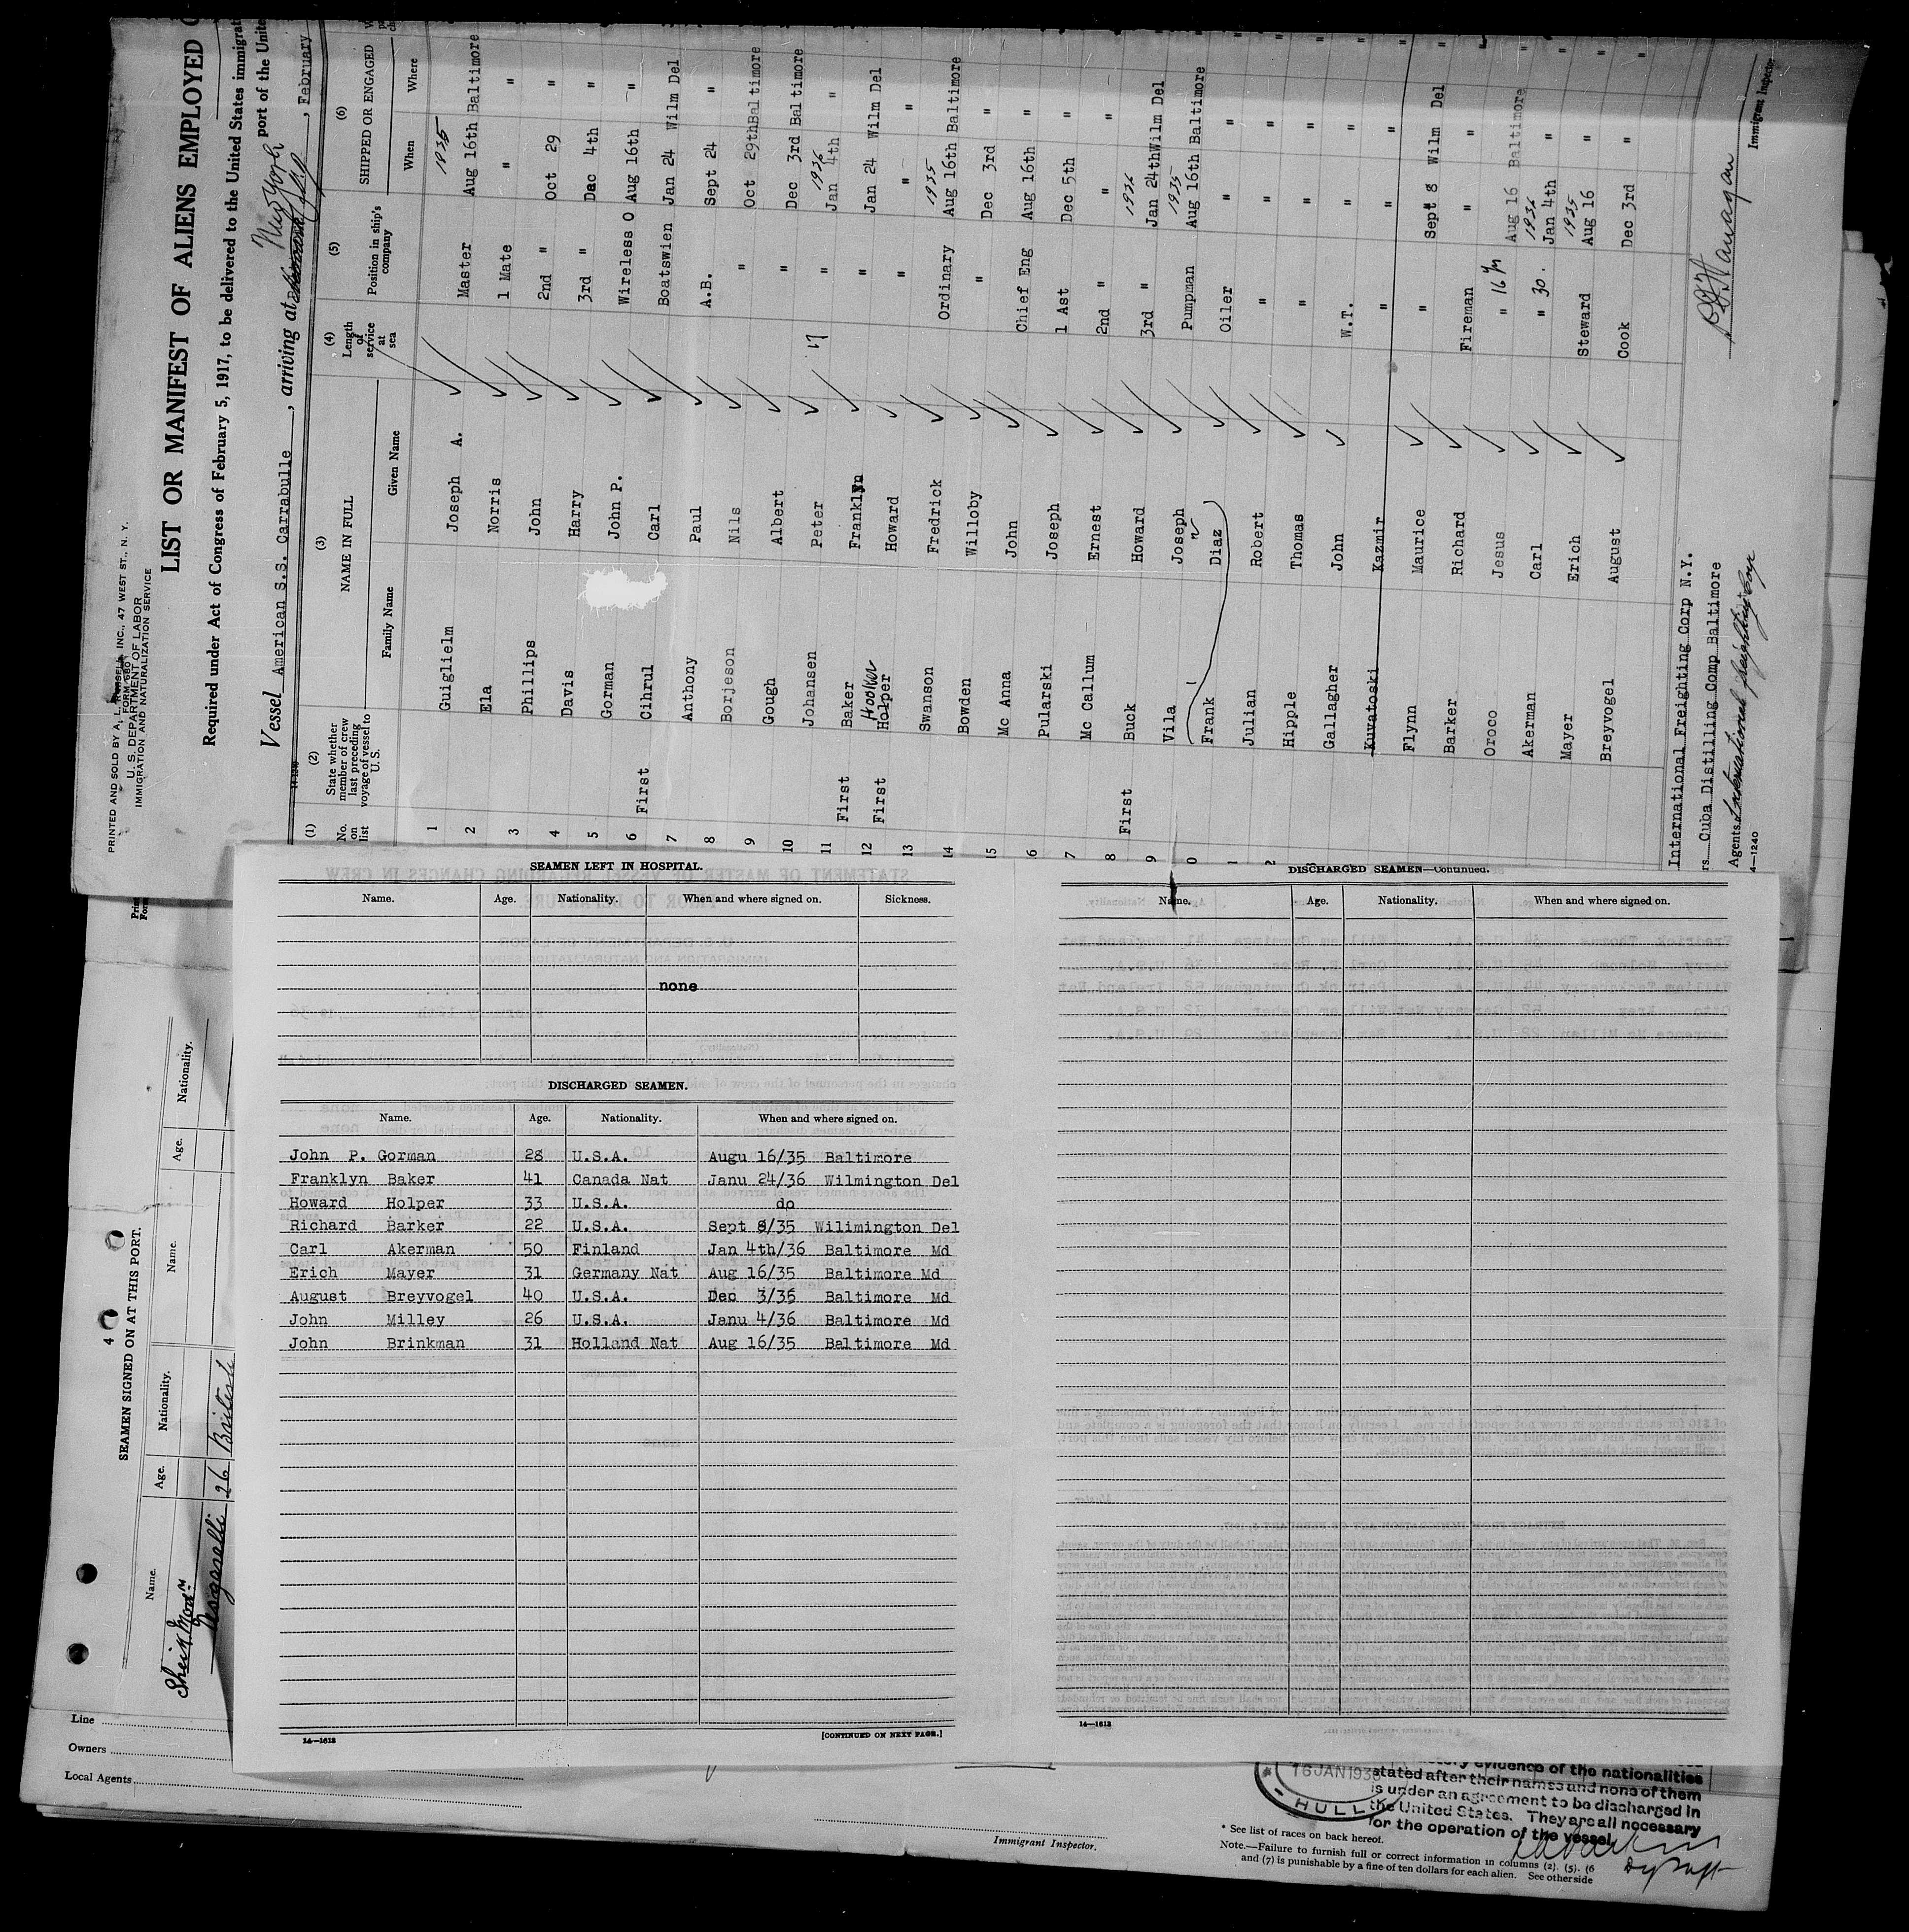 PRINTED AND SOLD BY A. L. RUSSELL, INC., 47 WEST ST., N. Y.
FORM 680
U. S. DEPARTMENT OF LABOR
IMMIGRATION AND NATURALIZATION SERVICE
LIST OR MANIFEST OF ALIENS EMPLOYED
Required under Act of Congress of February 5, 1917, to be delivered to the United States immigrat
port of the Unite
Vessel American S.S. Carrabulle , arriving at New York , February
(1) No. on list
(2) State whether member of crew last preceding voyage of vessel to U. S.
(3) NAME IN FULL
Family Name Given Name
(4) Length of service at sea
(5) Position in ship's company
(6) SHIPPED OR ENGAGED
When Where
1935
1 Guiglielm Joseph A. Master Aug 16th Baltimore
2 Ela Norris 1 Mate " "
3 Phillips John 2nd " Oct 29 "
4 Davis Harry 3rd " Dec 4th "
5 Gorman John P. Wireless O Aug 16th "
6 First Cihrul Carl Boatswien Jan 24 Wilm Del
7 Anthony Paul A.B. Sept 24 "
8 Borjeson Nils " Oct 29th Baltimore
9 Gough Albert " Dec 3rd Baltimore
1936
10 Johansen Peter 17 " Jan 4th "
11 First Baker Franklyn " Jan 24 Wilm Del
Hooker
12 First Holper Howard " " "
1935
13 Swanson Fredrick Ordinary Aug 16th Baltimore
14 Bowden Willoby " Dec 3rd "
15 Mc Anna John Chief Eng Aug 16th "
6 Pularski Joseph 1 Ast Dec 5th "
7 Mc Callum Ernest 2nd " " "
1936
8 First Buck Howard 3rd " Jan 24th Wilm Del
1935
9 Vila Joseph Pumpman Aug 16th Baltimore
0 Frank Diaz Oiler " "
1 Julian Robert " " "
2 Hipple Thomas " " "
Gallagher John W.T. " "
Kuvatoski Kazmir " " "
Flynn Maurice " Sept 8 Wilm Del
Barker Richard Fireman " "
Oroco Jesus " Aug 16 Baltimore
1936
Akerman Carl " 30. Jan 4th "
1935
Mayer Erich Steward Aug 16 "
Breyvogel August Cook Dec 3rd "
International Freighting Corp N.Y.
rs Cuba Distilling Comp Baltimore
Agents International Freighting Corp
Immigrant Inspector
4—1240
SEAMEN LEFT IN HOSPITAL.
Name. Age. Nationality. When and where signed on. Sickness.
none
DISCHARGED SEAMEN.
Name. Age. Nationality. When and where signed on.
John P. Gorman 28 U.S.A. Augu 16/35 Baltimore
Franklyn Baker 41 Canada Nat Janu 24/36 Wilmington Del
Howard Holper 33 U.S.A. do
Richard Barker 22 U.S.A. Sept 8/35 Wilimington Del
Carl Akerman 50 Finland Jan 4th/36 Baltimore Md
Erich Mayer 31 Germany Nat Aug 16/35 Baltimore Md
August Breyvogel 40 U.S.A. Dec 3/35 Baltimore Md
John Milley 26 U.S.A. Janu 4/36 Baltimore Md
John Brinkman 31 Holland Nat Aug 16/35 Baltimore Md
14—1613
[CONTINUED ON NEXT PAGE.]
DISCHARGED SEAMEN—Continued.
Name. Age. Nationality. When and where signed on.
14—1613
4
SEAMEN SIGNED ON AT THIS PORT.
Name. Age. Nationality. Name. Age. Nationality.
26 British
Line
Owners
Local Agents
Immigrant Inspector.
16 JAN 1936
HULL
evidence of the nationalities
stated after their names and none of them
is under an agreement to be discharged in
the United States. They are all necessary
for the operation of the vessel
* See list of races on back hereof.
Note.—Failure to furnish full or correct information in columns (2), (5), (6
and (7) is punishable by a fine of ten dollars for each alien. See other side